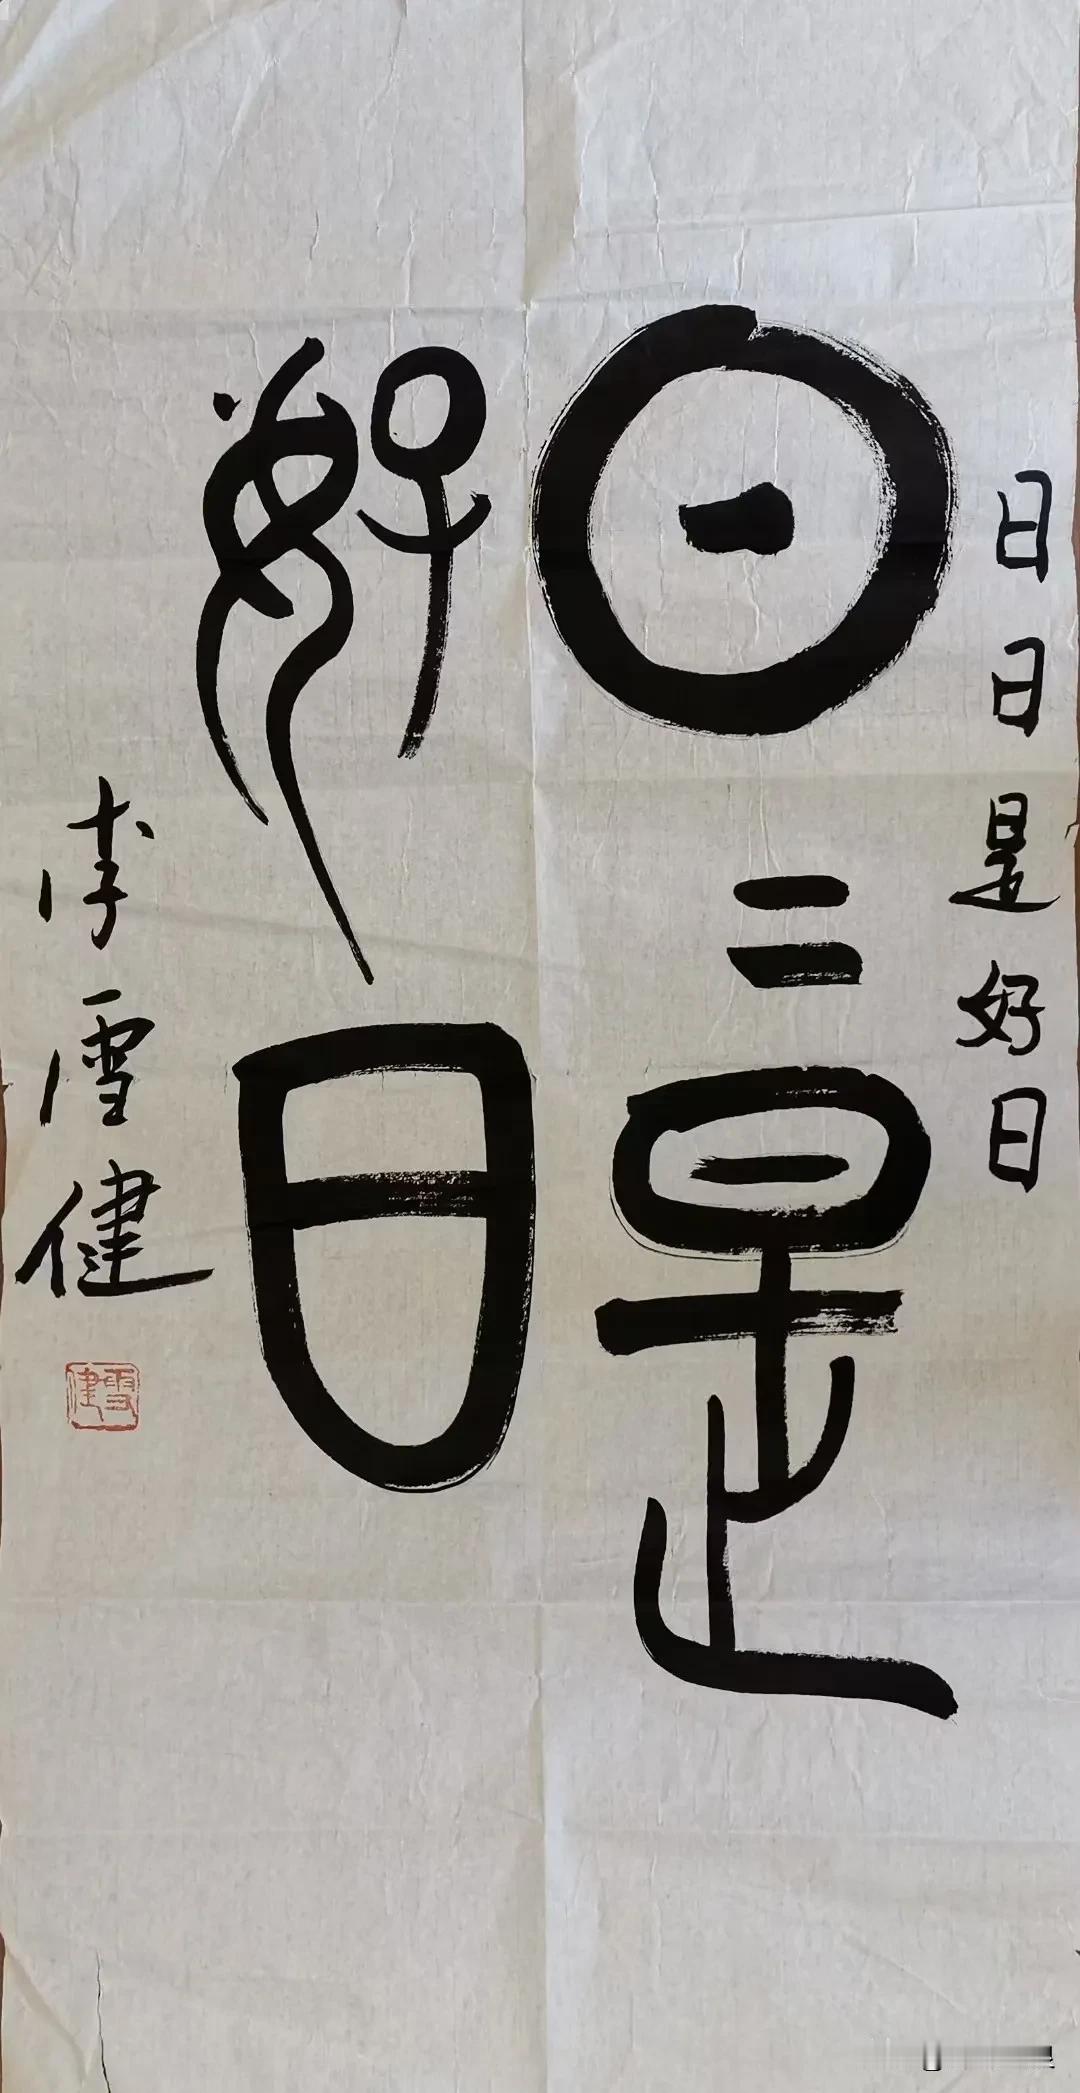 日日是好日
日〻是
好日
李雪健
雪健